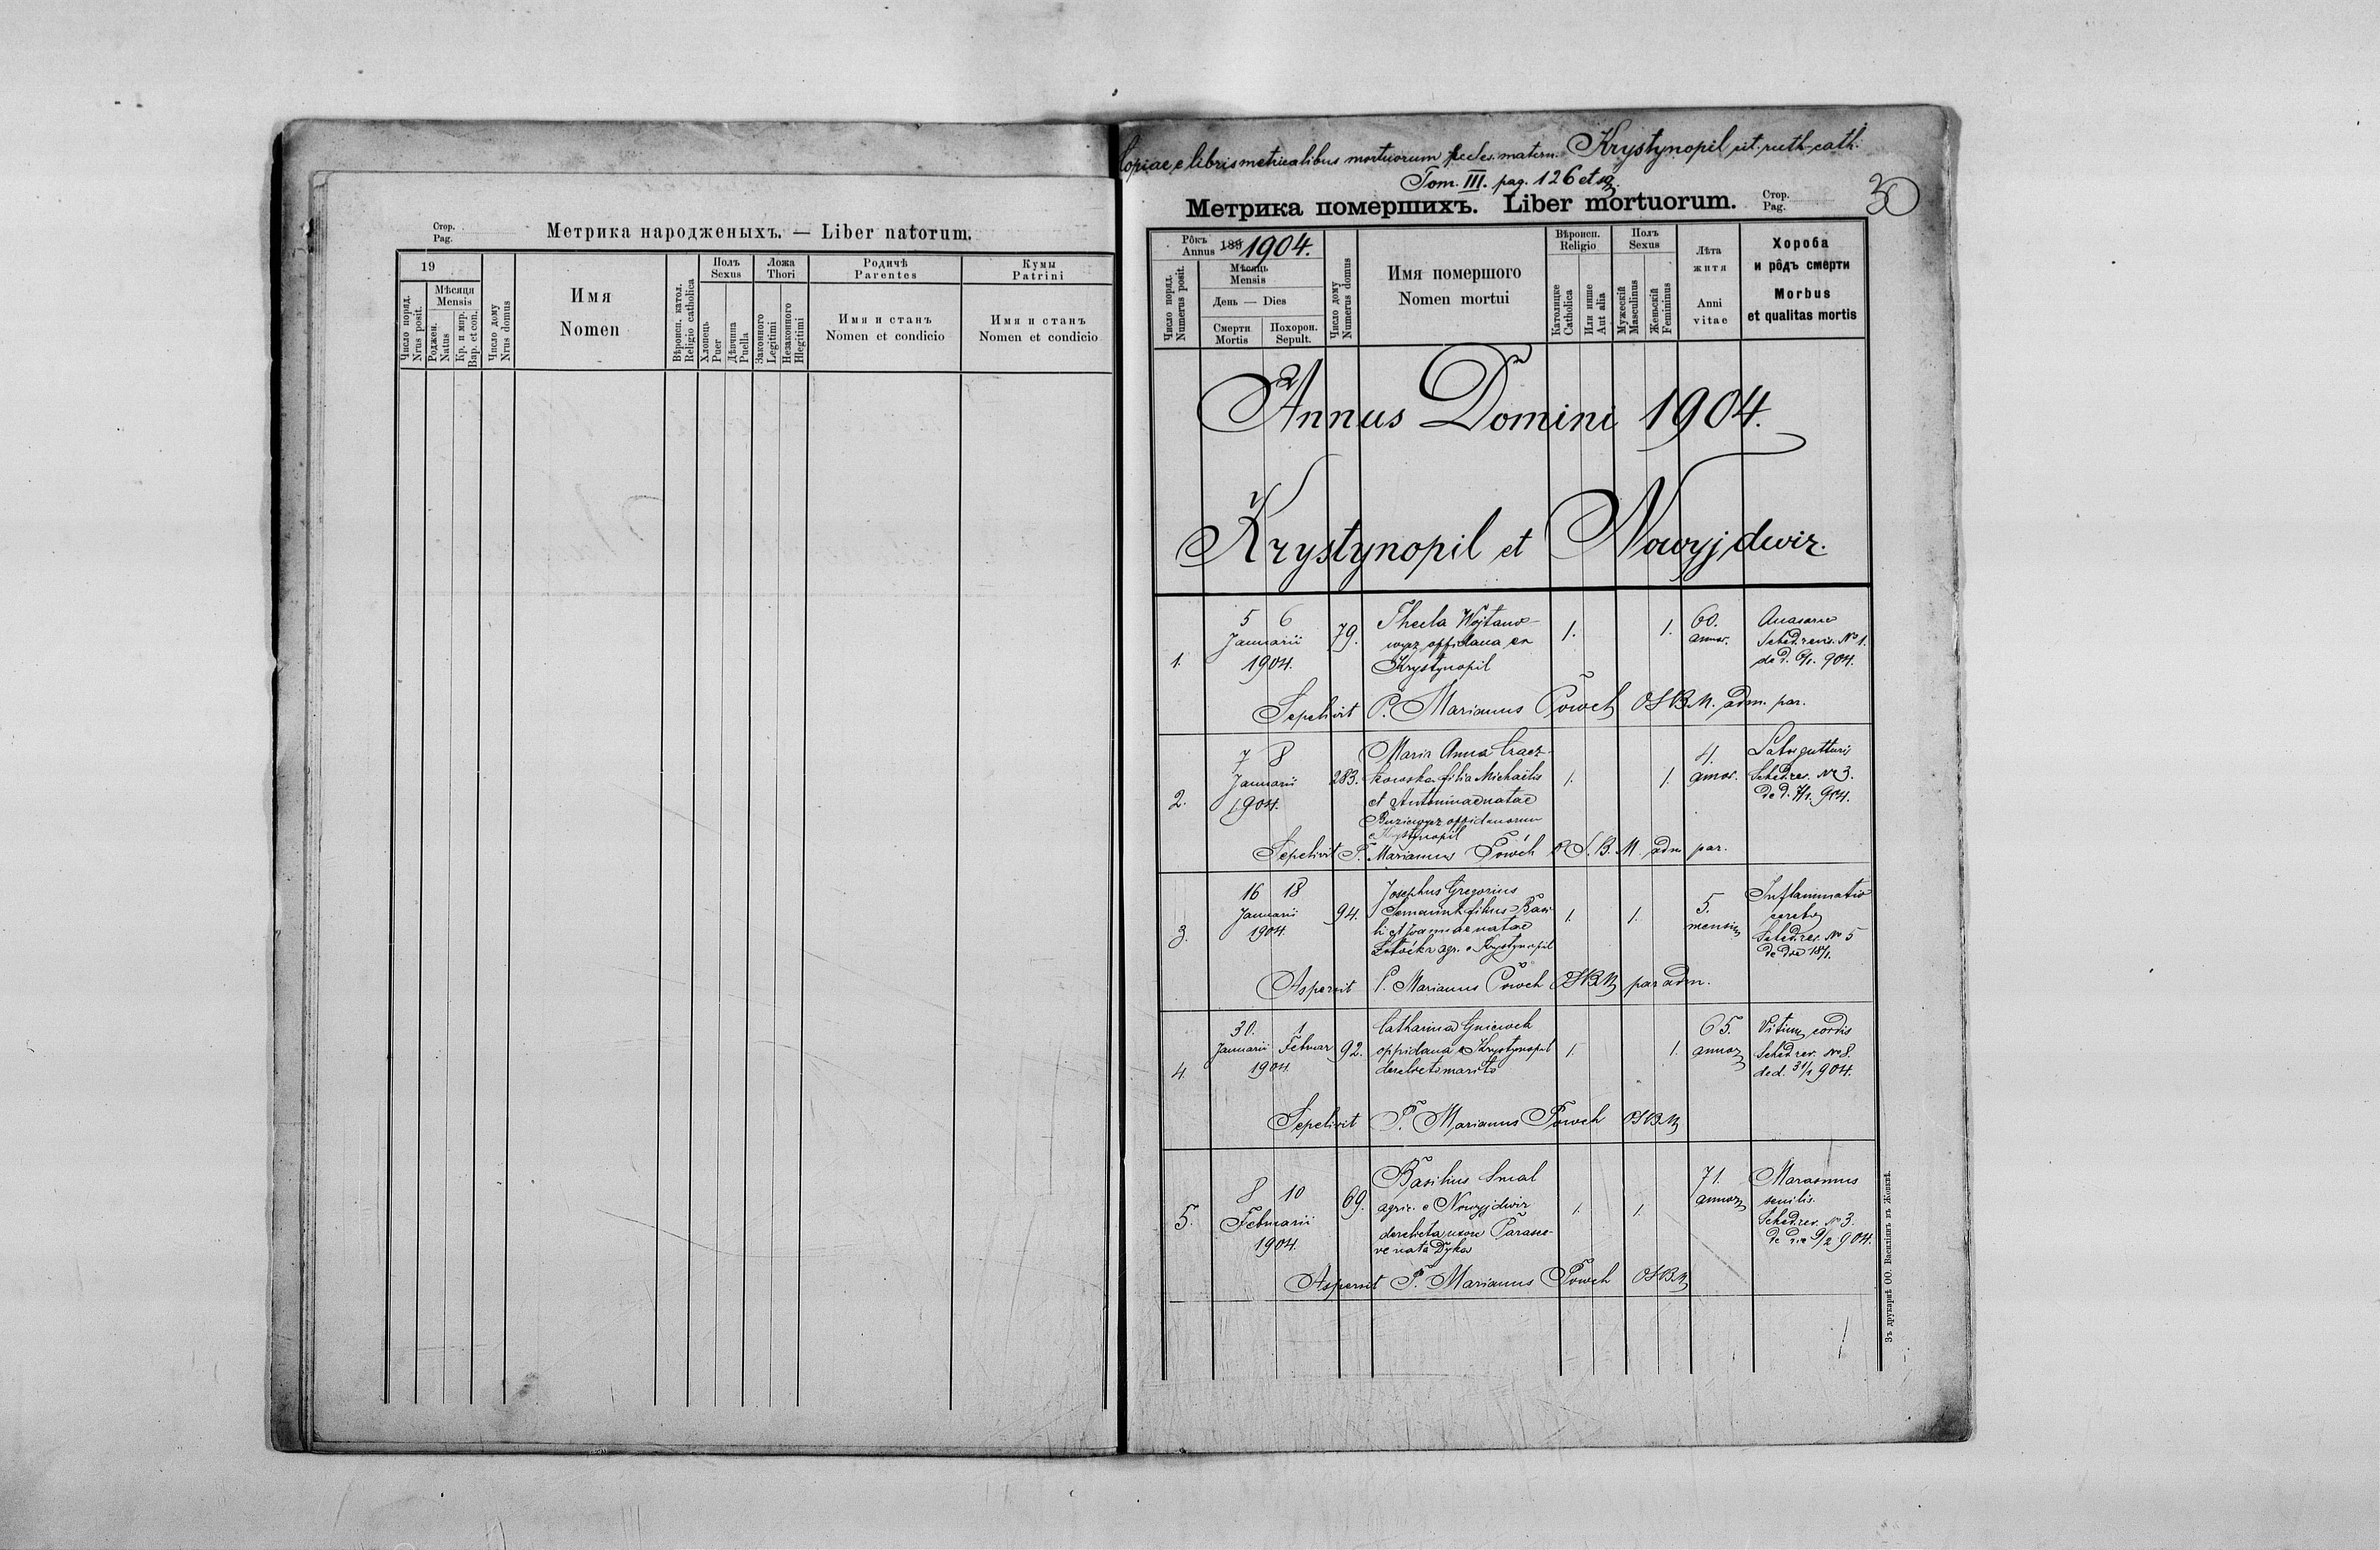 Стор.
Pag.
Метрика народженыхъ. — Liber natorum.
19
Число поряд.
Nrus posit.
Мѣсяця
Mensis
Роджен.
Natus
Кр. и мир.
Bap. et con.
Число дому
Nrus domus
Имя
Nomen
Вѣроисп. катол.
Religio catholica
Полъ
Sexus
Хлопець
Puer
Дѣвчина
Puella
Ложа
Thori
Законного
Legitimi
Незаконного
Illegitimi
Родичѣ
Parentes
Имя и станъ
Nomen et condicio
Кумы
Patrini
Имя и станъ
Nomen et condicio
Copiae e libris metricalibus mortuorum eccles. matern. Krystynopil rit. ruth. cath.
Tom. III. pag. 126 et sq.
Метрика помершихъ. Liber mortuorum.
Стор.
Pag.
30
Рôкъ
Annus 189 1904.
Число поряд.
Numerus posit.
Мѣсяць
Mensis
День — Dies
Смерти
Mortis
Похорон.
Sepult.
Число дому
Numerus domus
Имя помершого
Nomen mortui
Вѣроисп.
Religio
Католицке
Catholica
Или инше
Aut alia
Полъ
Sexus
Мужескій
Masculinus
Женьскій
Femininus
Лѣта
житя
Anni
vitae
Хороба
и рôдъ смерти
Morbus
et qualitas mortis
Annus Domini 1904.
Krystynopil et Nowyjdwir.
1.
5 6
Januarii
1904.
79.
Thecla Wojtano-
wycz oppidana ex
Krystynopil
1.
1.
60.
annor.
Anasarca
Sched. revis. No 1.
de d. 6/1. 904.
Sepelivit P. Marianus Powch OSBM. adm. par.
2.
7 8
Januarii
1904.
283.
Maria Anna
filia Michaëlis
et Antoninae natae
oppidanorum
e Krystynopil
1.
1.
4.
annor.
gutturis
Sched. rev. No 3.
de d. 7/1. 904.
Sepelivit P. Marianus Powch O.S.B.M. adm par.
3.
16 18
Januarii
1904.
94.
Josephus Gregorius
filius Basi-
lii et Joannae natae
agr. e Krystynopil
1.
1.
5.
mensium
Inflammatio
cerebri
Sched. rev. No 5
de die 18/1.
Aspersit P. Marianus Powch OSBM par adm.
4.
30. 1
Januarii Februar
1904
92.
Catharina Gniewch
oppidana e Krystynopil
derelicto marito
1.
1.
65.
annor.
Vitium cordis
Sched. rev. No 8.
de d. 31/1 904.
Sepelivit P. Marianus Powch OSBM
5.
8 10
Februarii
1904.
69.
Basilius Smal
agric. e Nowyjdwir
derelicta uxore Parasce-
ve nata Dyka
1.
1.
71.
annor.
Marasmus
senilis.
Sched. rev. No 3.
de die 9/2 904.
Aspersit P. Marianus Powch OSBM
Зъ друкарнѣ ОО. Василіянъ въ Жовквѣ.